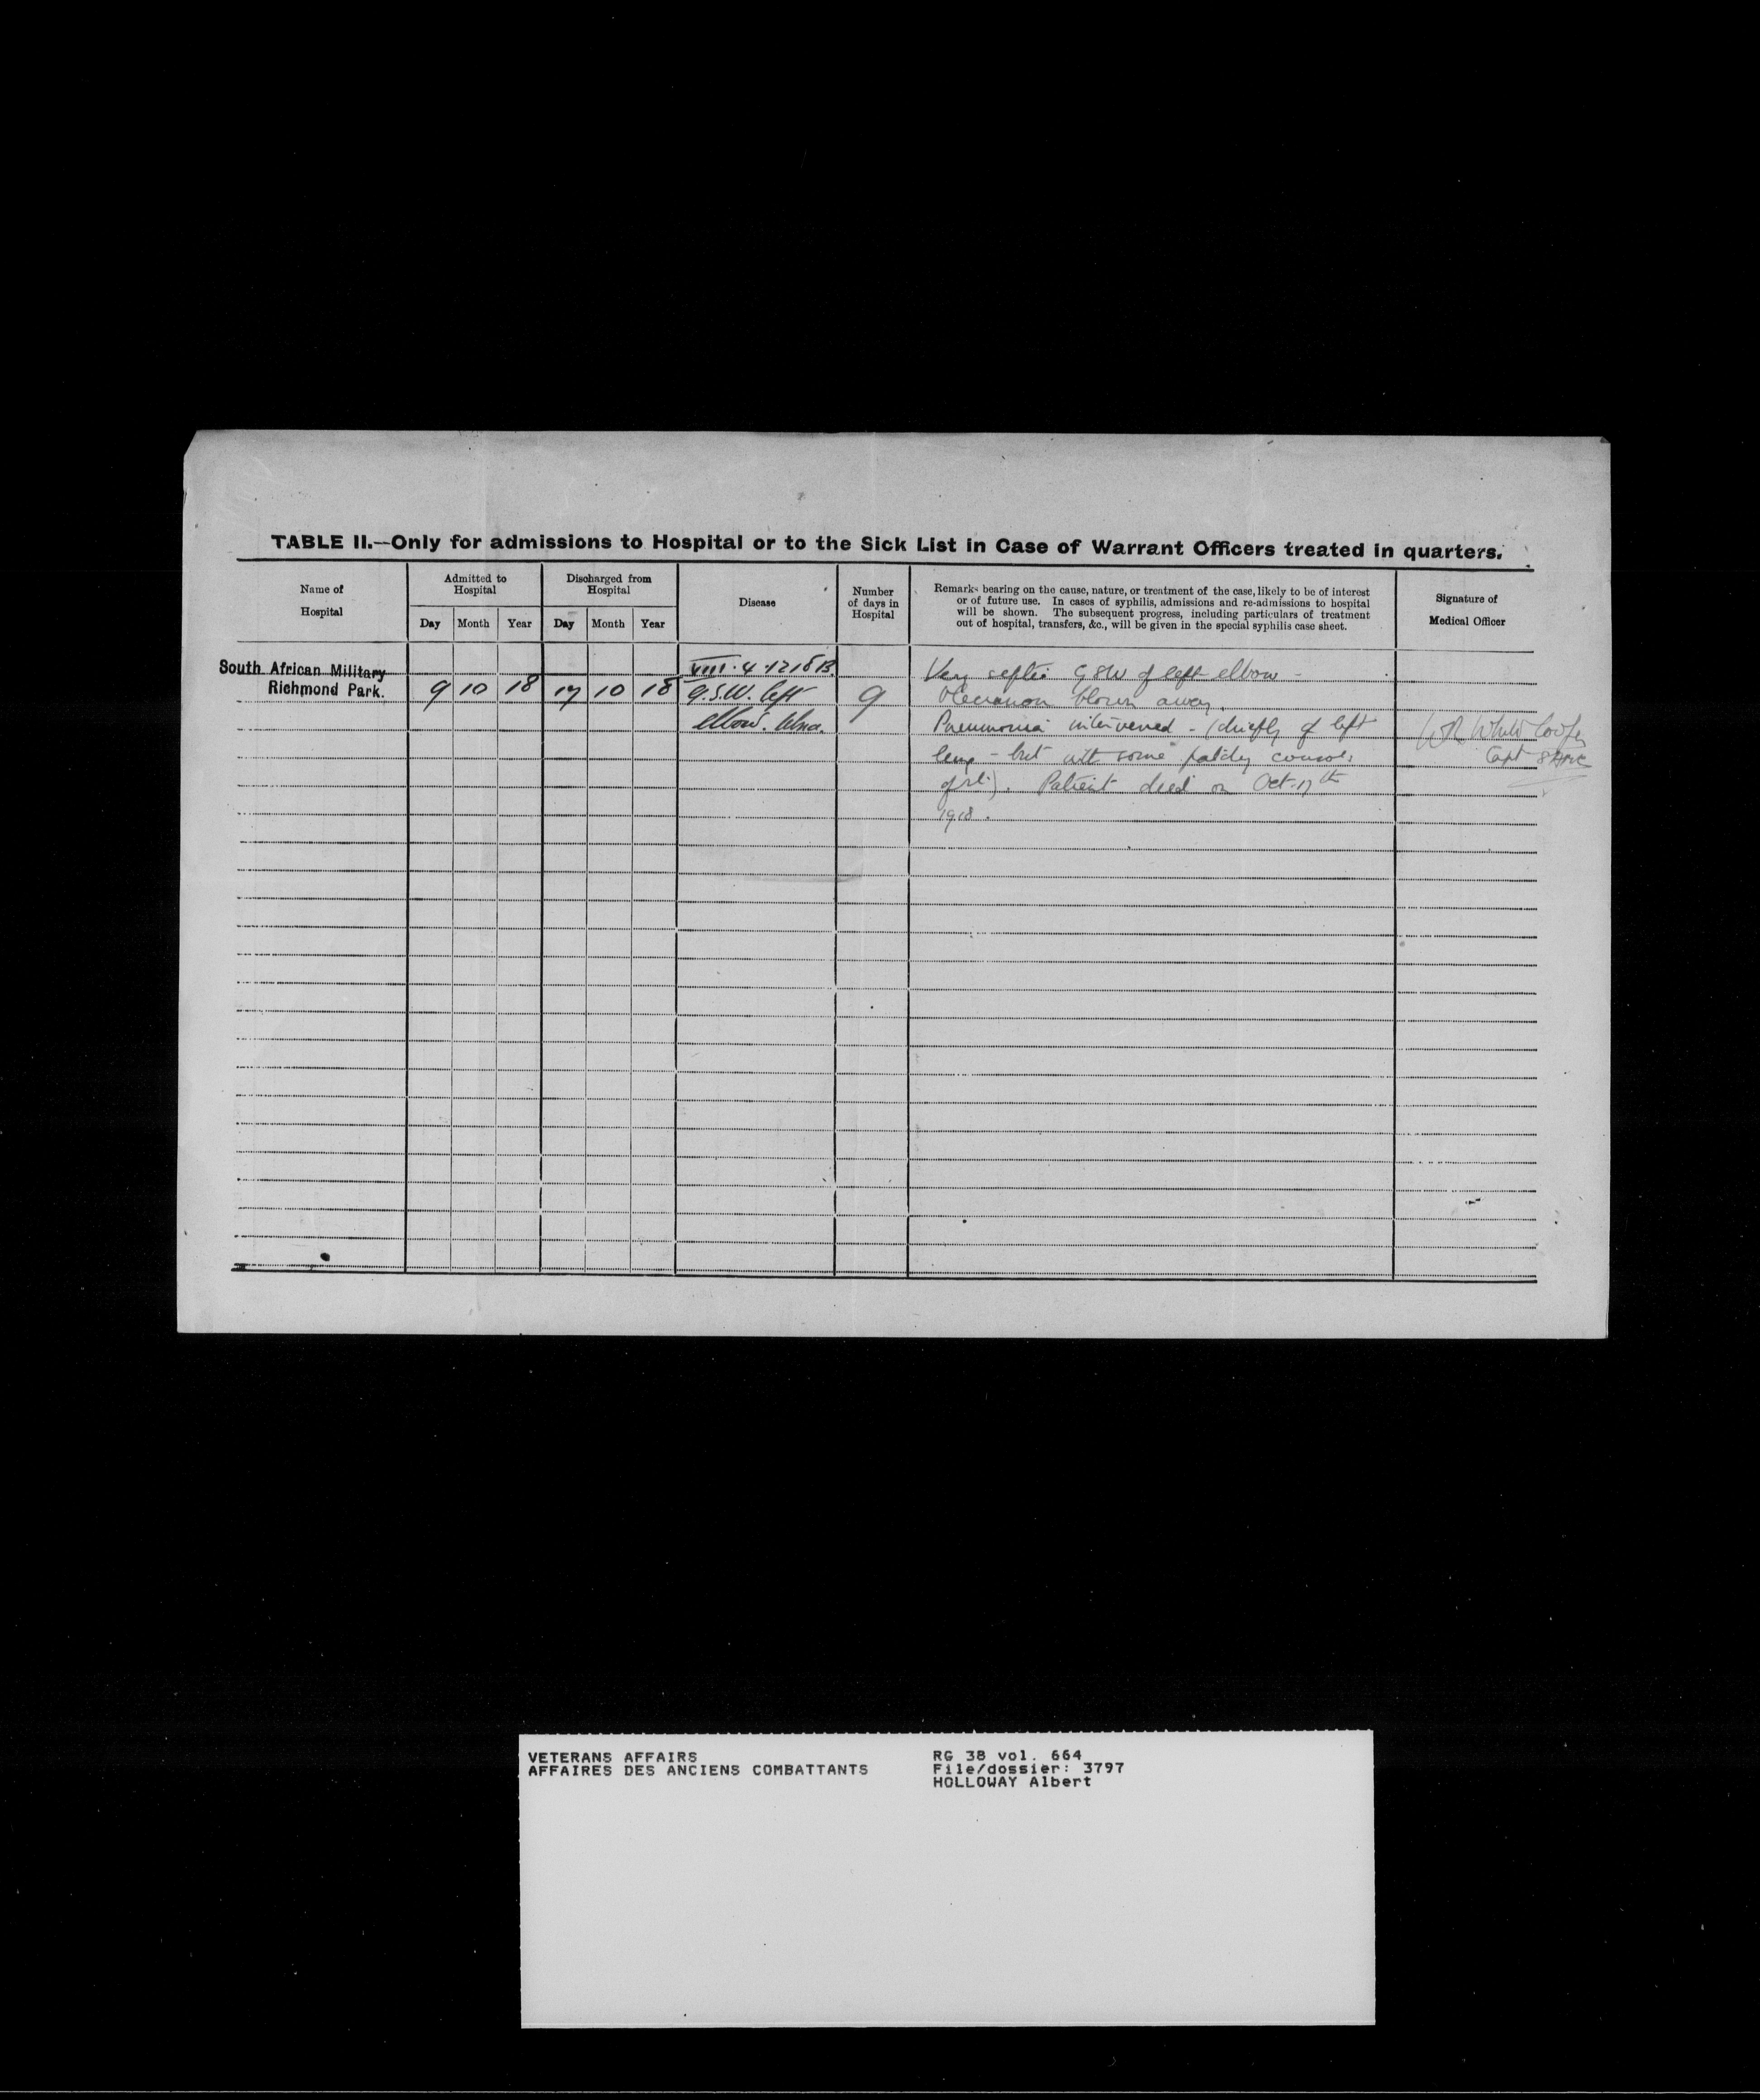 TABLE II.—Only for admissions to Hospital or to the Sick List in Case of Warrant Officers treated in quarters.
Name of
Hospital
Admitted to
Hospital
Day Month Year
Discharged from
Hospital
Day Month Year
Disease
Number
of days in
Hospital
Remarks bearing on the cause, nature, or treatment of the case, likely to be of interest
or of future use. In cases of syphilis, admissions and re-admissions to hospital
will be shown. The subsequent progress, including particulars of treatment
out of hospital, transfers, &c., will be given in the special syphilis case sheet.
Signature of
Medical Officer
South African Military
Richmond Park.
9 10 18 17 10 18
VIII. 4. 1218 B.
G.S.W. left
elbow. Ulna.
9
Very septic GSW of left elbow -
Olecranon blown away.
Pneumonia intervened - (chiefly of left
lung - but with some patchy consol:
of rt:). Patient died on Oct. 17th
1918.
Capt SAMC
VETERANS AFFAIRS
AFFAIRES DES ANCIENS COMBATTANTS
RG 38 vol. 664
File/dossier: 3797
HOLLOWAY Albert